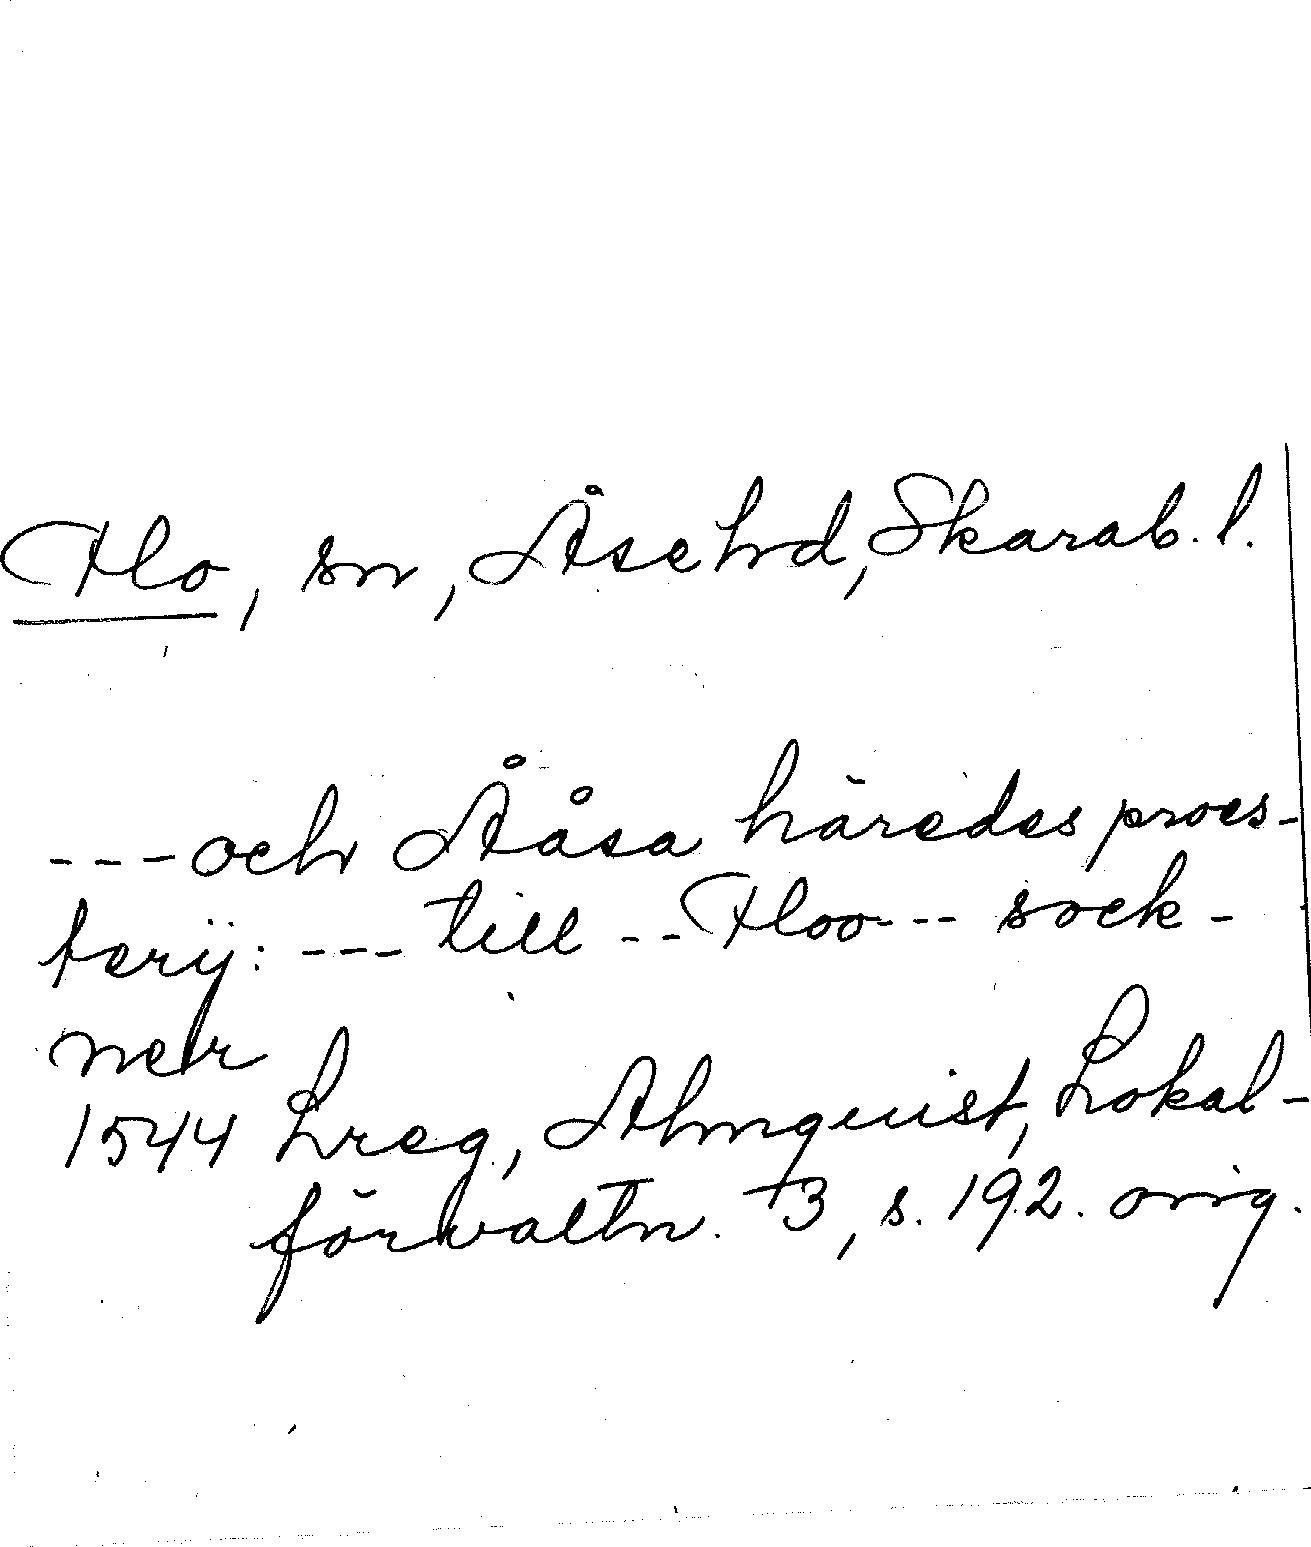 Flo, sn, Åse hd, Skarab. l.
---och Ååsa häredes proes-
terij: --- till --Floo--- sock-
ner
1544 Lreg, Almquist, Lokal-
förvaltn. 3, s. 192. orig.